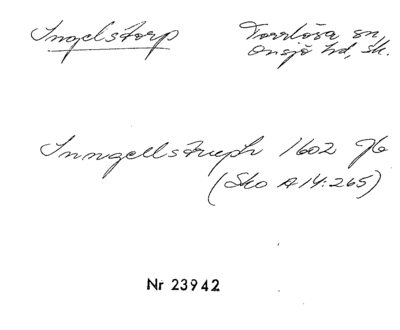 Ingelstorp
Torrlösa sn,
Onsjö hd, Sk.
Inngellstruph 1602 Jb
(Sko A 14:265)
Nr 23942